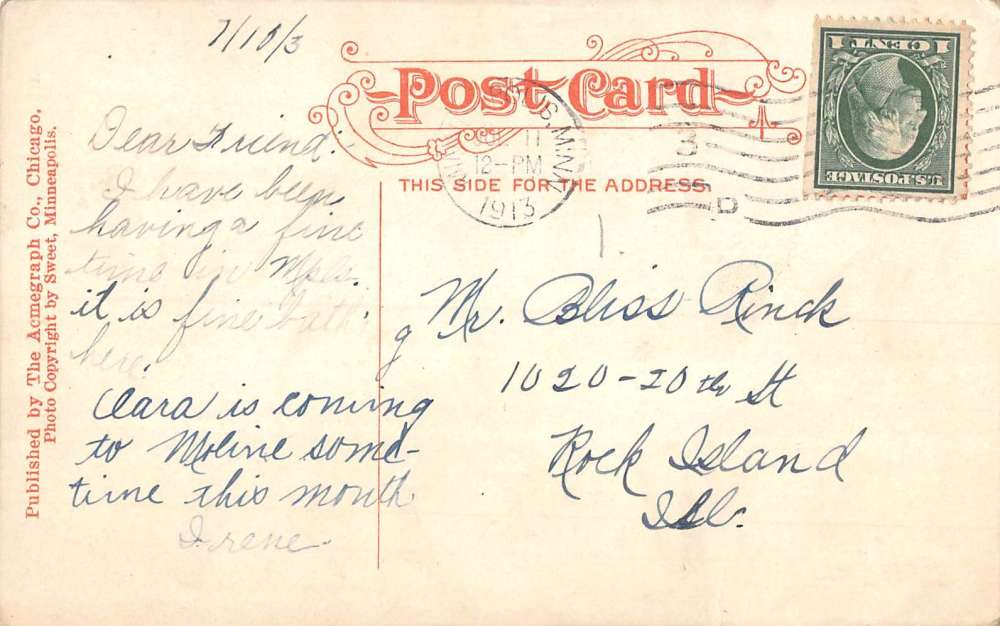 7/10/3
Post Card
THIS SIDE FOR THE ADDRESS.
11
12-PM
1913
MINN
3
D
1 CENT 1
U.S. POSTAGE
Published by The Acmegraph Co., Chicago,
Photo Copyright by Sweet, Minneapolis.
Dear Friend:
I have been
having a fine
time in Mpls.
it is fine bath
here
Clara is coming
to Moline some-
time this month
Irene.
Mr. Bliss Rinck
1020-20th St
Rock Island
Ill.